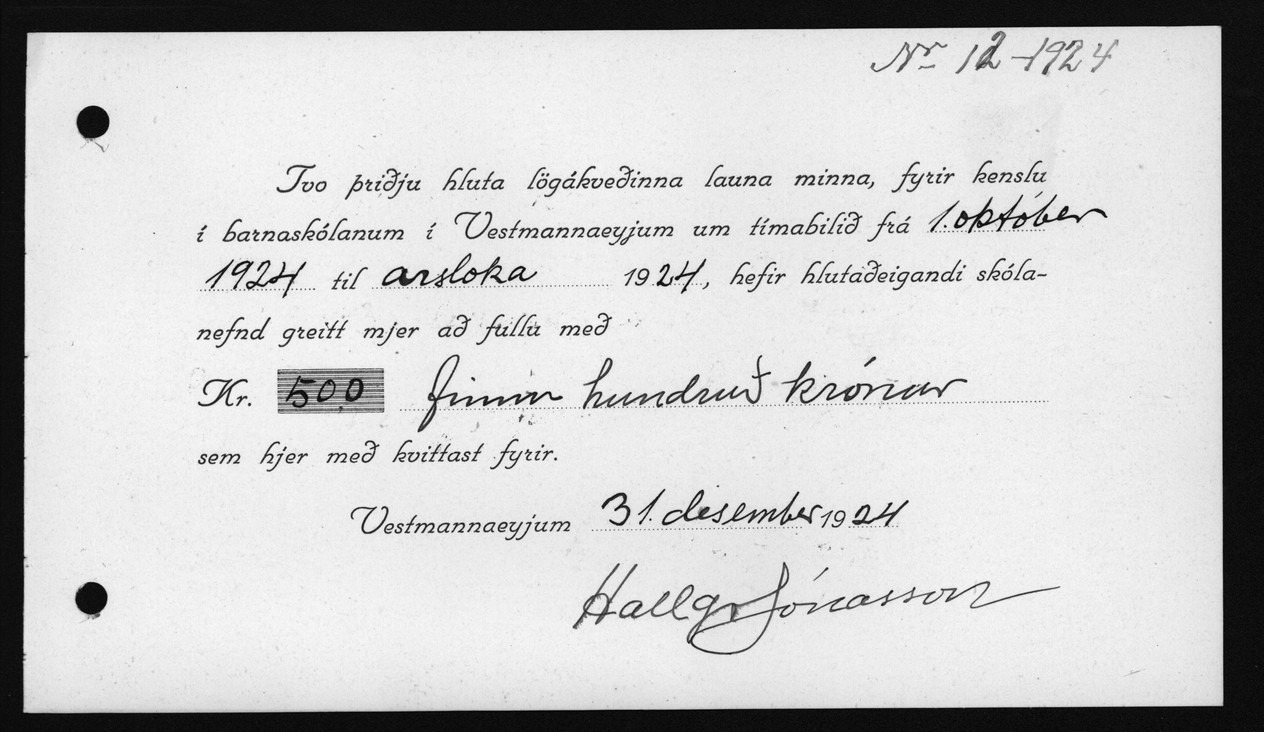 Nr 12 - 1924
Tvo þriðju hluta lögákveðinna launa minna, fyrir kenslu
í barnaskólanum í Vestmannaeyjum um tímabilið frá 1. október
1924 til arsloka 1924, hefir hlutaðeigandi skóla-
nefnd greitt mjer að fullu með
Kr. 500 fimm hundruð krónur
sem hjer með kvittast fyrir.
Vestmannaeyjum 31. desember 1924
Hallgr Jónasson